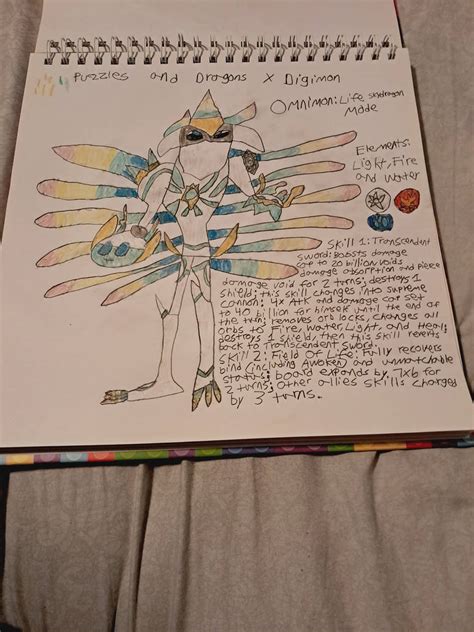 Puzzles and Dragons X Digimon
Omnimon: Life shdragon
Mode
Elements:
Light, Fire
and Water
Skill 1: Transcendent
Sword: Boosts damage
cap to 20 billion voids
damage absorption and pierce
damage void for 2 turns; destroys 1
shield; this skill changes into supreme
cannon: 4x Atk and damage cap set
to 40 billion for himself until the end of
the turn; removes orb locks, changes all
orbs to Fire, Water, Light, and Heal;
destroys 1 shield, then this skill reverts
back to Transcendent Sword.
Skill 2: Field Of Life: Fully recovers
bind (including Awoken) and unmatchable
status; board expands by 7x6 for
2 turns; Other allies skills charged
by 3 turns.